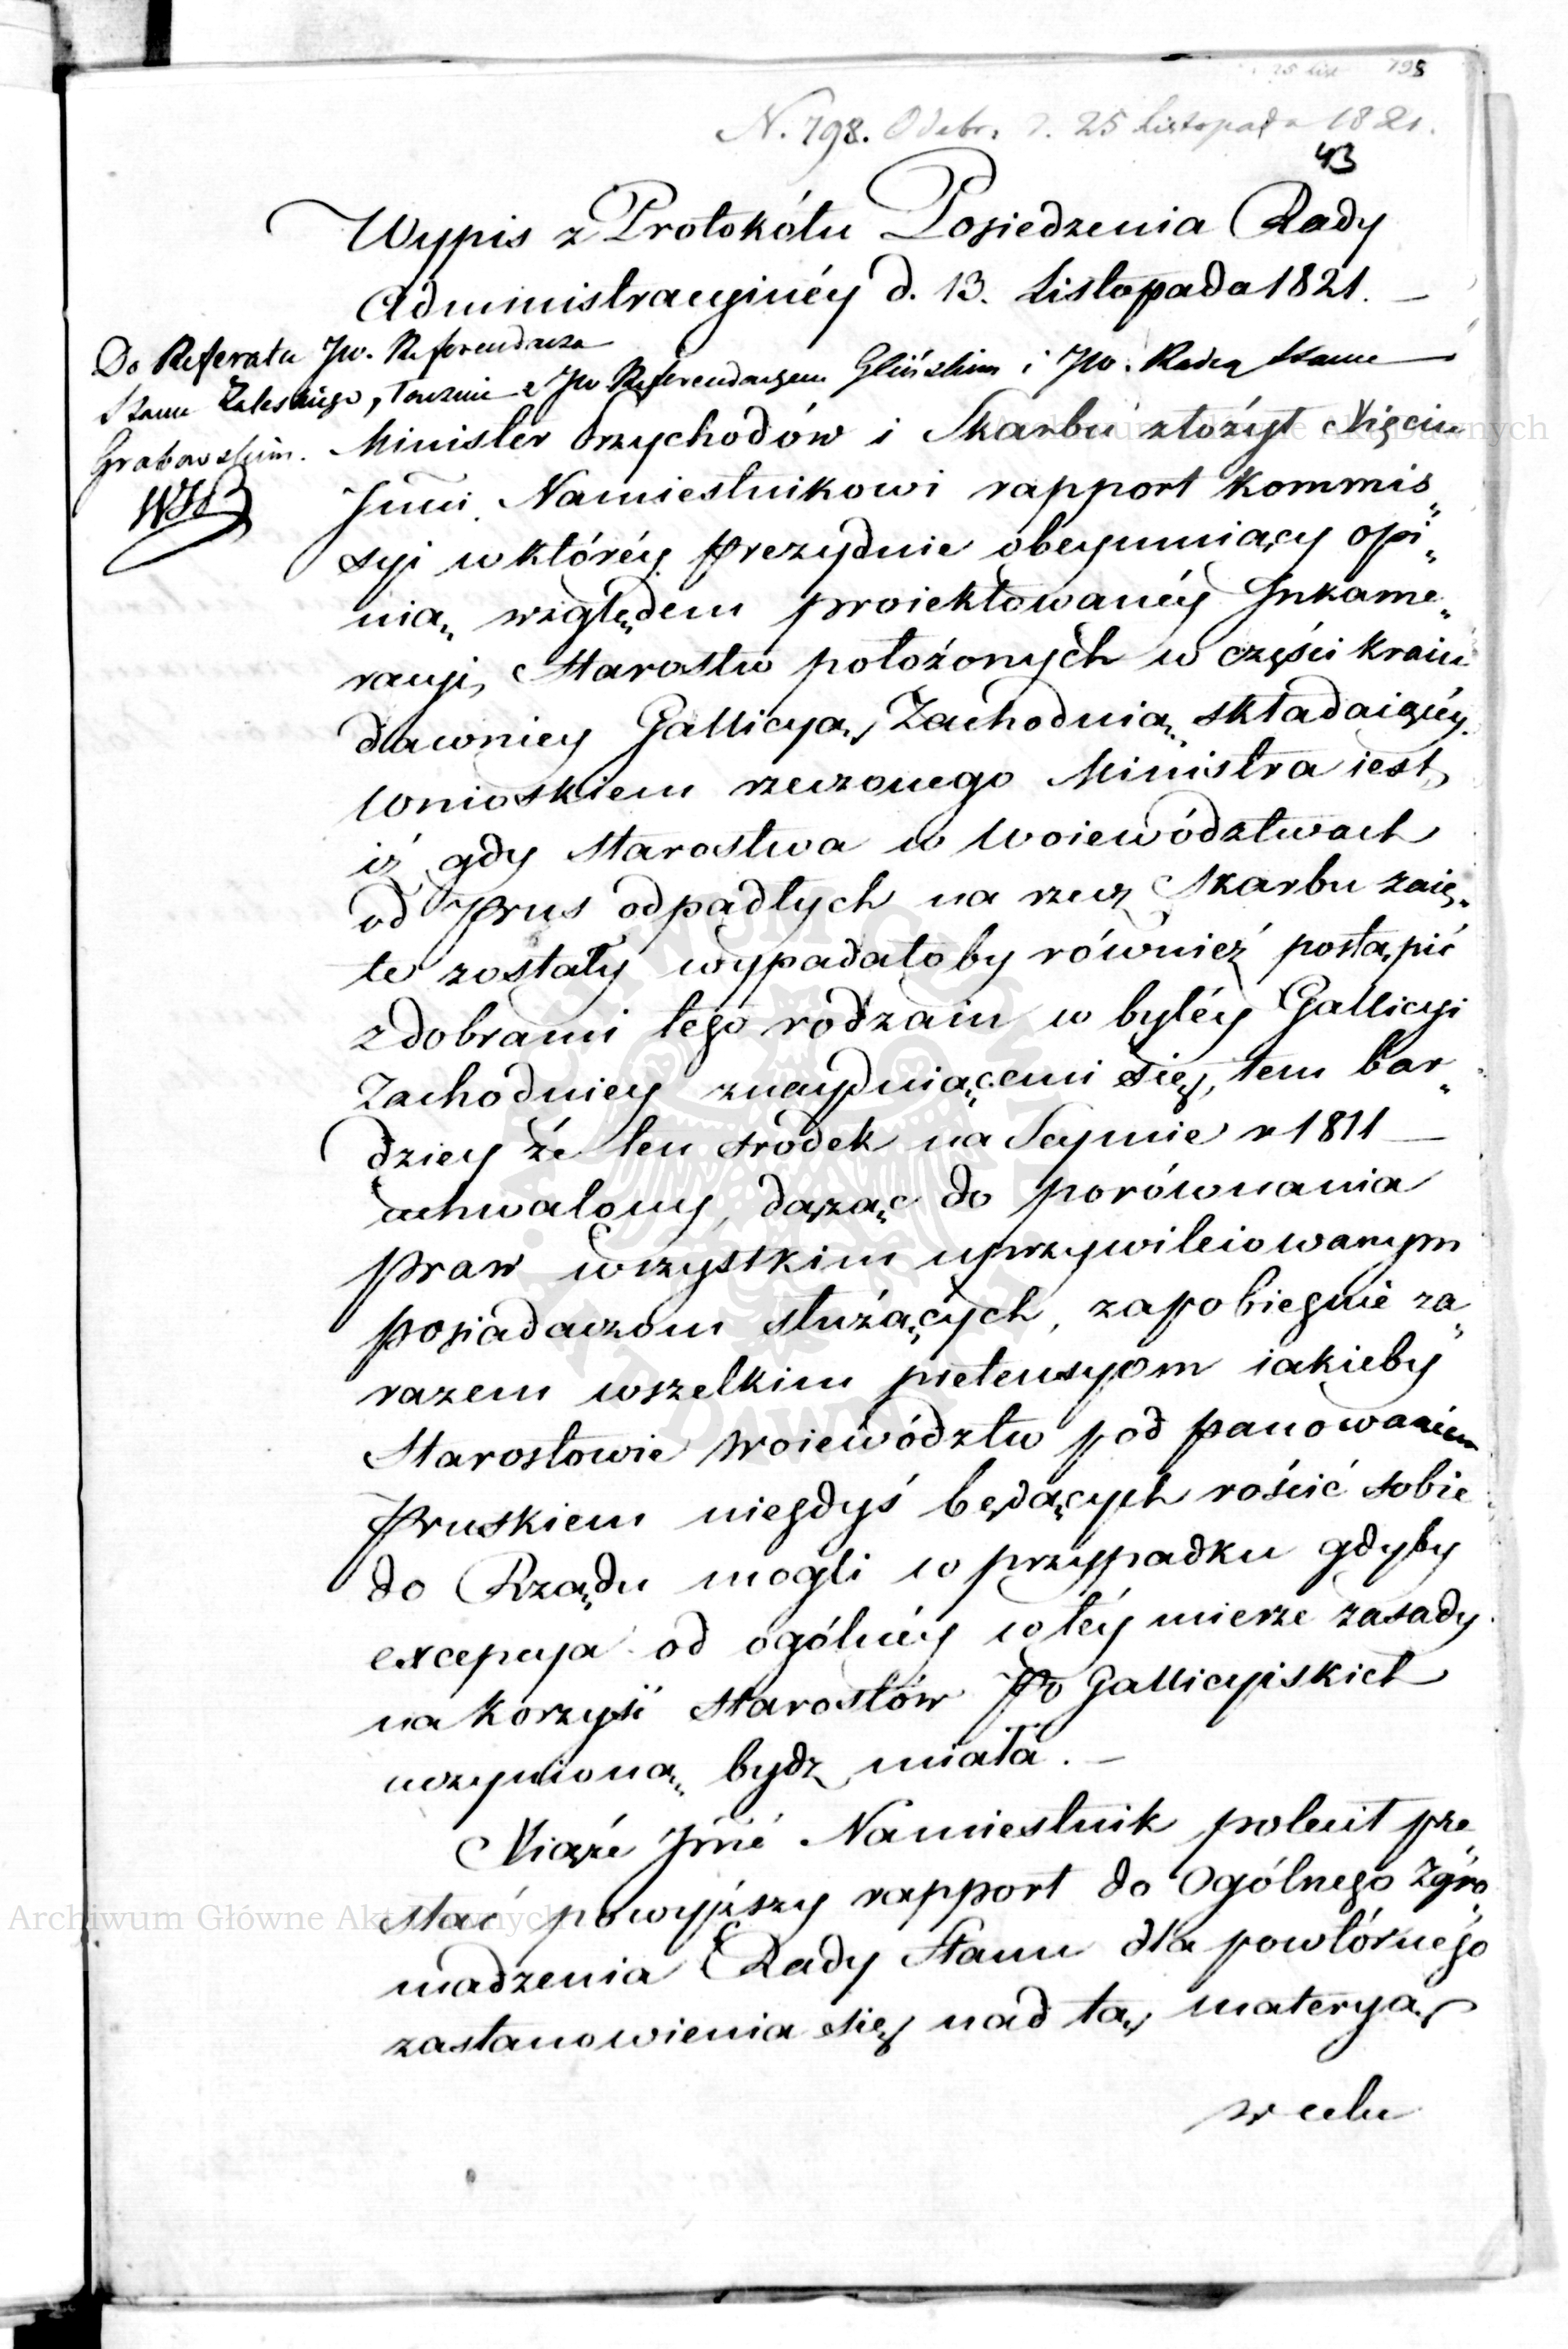 798
N. 798. Odebr. d. 25 Listopada 1821.
43
Wypis z Protokółu Posiedzenia Rady
Administracyinéy d. 13. Listopada 1821. —
Do Referatu JW. Referendarza
Stanu Zaleskiego, łącznie z JW Referendarzem Glińskim i JW. Radcą Stanu
Grabowskim.
Minister Przychodów i Skarbu złożył Xięciu
Jmci Namiestnikowi rapport Kommis„
syi w któréy prezyduie obeymuiący opi„
nią względem proiektowanéy Inkame„
racyi Starostw położonych w części kraiu
dawniey Gallicyą Zachodnią składaiącéy.
Wnioskiem rzeczonego Ministra iest,
iż gdy Starostwa w Woiewództwach
od Prus odpadłych na rzecz Skarbu zaię„
te zostały wypadałoby również postąpić
z dobrami tego rodzaiu w byłéy Gallicyi
Zachodniey znayduiącemi się, tem bar„
dziey że ten srodek na Seymie r 1811 —
uchwalony, dążąc do porównania
praw wszystkim uprzywileiowanym
posiadaczom służących, zapobiegnie za„
razem wszelkim pretensyom iakieby
Starostowie Woiewództw pod panowaniem
Pruskiem niegdyś będących rościć sobie
do Rządu mogli w przypadku gdyby
excepcya od ogólnéy w téy mierze zasady
na korzyść Starostów Po Gallicyiskich
uczynioną bydz miała. —
Xiąże Jmć Namiestnik polecił prze„
słać powyższy rapport do Ogólnego Zgro„
madzenia Rady Stanu dla powtórnego
zastanowienia się nad tą materyą
w celu
Archiwum Główne Akt Dawnych
ARCHIWUM GŁÓWNE AKT DAWNYCH